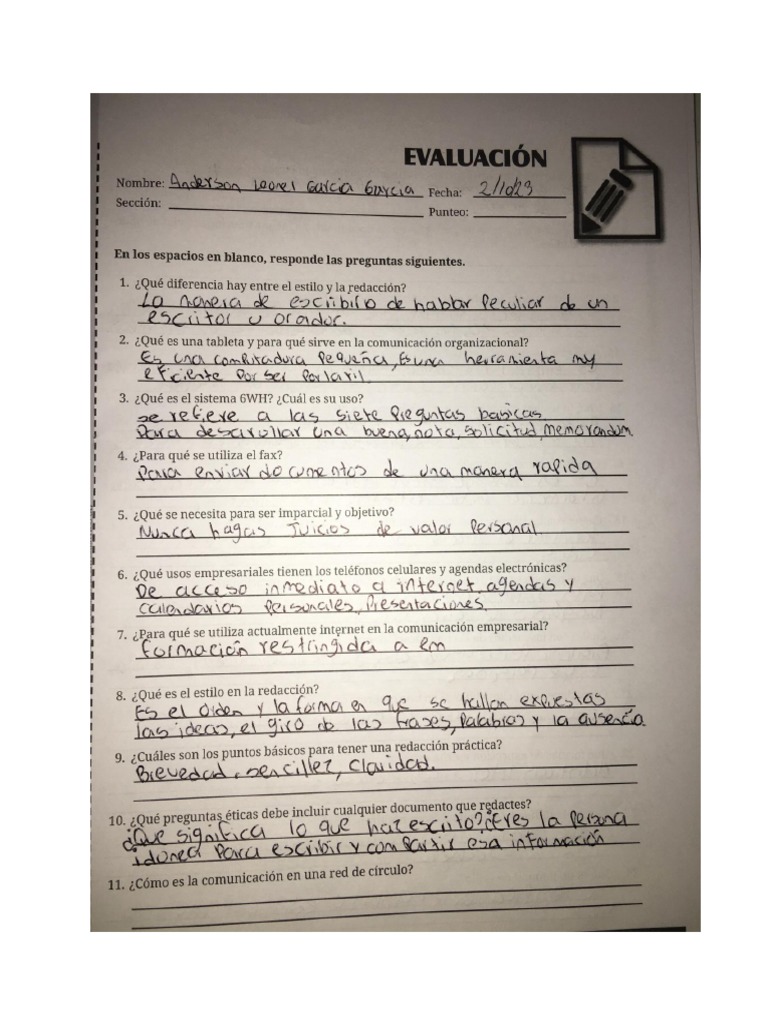 EVALUACIÓN
Nombre: Anderson Leonel Garcia Garcia Fecha: 2/10/23
Sección: Punteo:
En los espacios en blanco, responde las preguntas siguientes.
1. ¿Qué diferencia hay entre el estilo y la redacción?
La manera de escribir o de hablar Peculiar de un
escritor u orador.
2. ¿Qué es una tableta y para qué sirve en la comunicación organizacional?
Es una computadora Pequeña, Es una herramienta muy
eficiente Por ser Portatil
3. ¿Qué es el sistema 6WH? ¿Cuál es su uso?
se refiere a las siete Preguntas basicas
Para desarollar una buena, nota, solicitud, memorandum
4. ¿Para qué se utiliza el fax?
Para enviar documentos de una manera rapida
5. ¿Qué se necesita para ser imparcial y objetivo?
Nunca hagas Juicios de valor Personal
6. ¿Qué usos empresariales tienen los teléfonos celulares y agendas electrónicas?
De acceso inmediato a internet, agendas y
calendarios Personales, Presentaciones
7. ¿Para qué se utiliza actualmente internet en la comunicación empresarial?
formación restringida a em
8. ¿Qué es el estilo en la redacción?
Es el orden y la forma en que se hallan expuestas
las ideas, el giro de las frases, Palabras y la ausencia
9. ¿Cuáles son los puntos básicos para tener una redacción práctica?
Brevedad, sencillez, claridad.
10. ¿Qué preguntas éticas debe incluir cualquier documento que redactes?
¿Que significa lo que haz escrito? ¿Eres la Persona
idonea Para escribir y compartir esa información
11. ¿Cómo es la comunicación en una red de círculo?